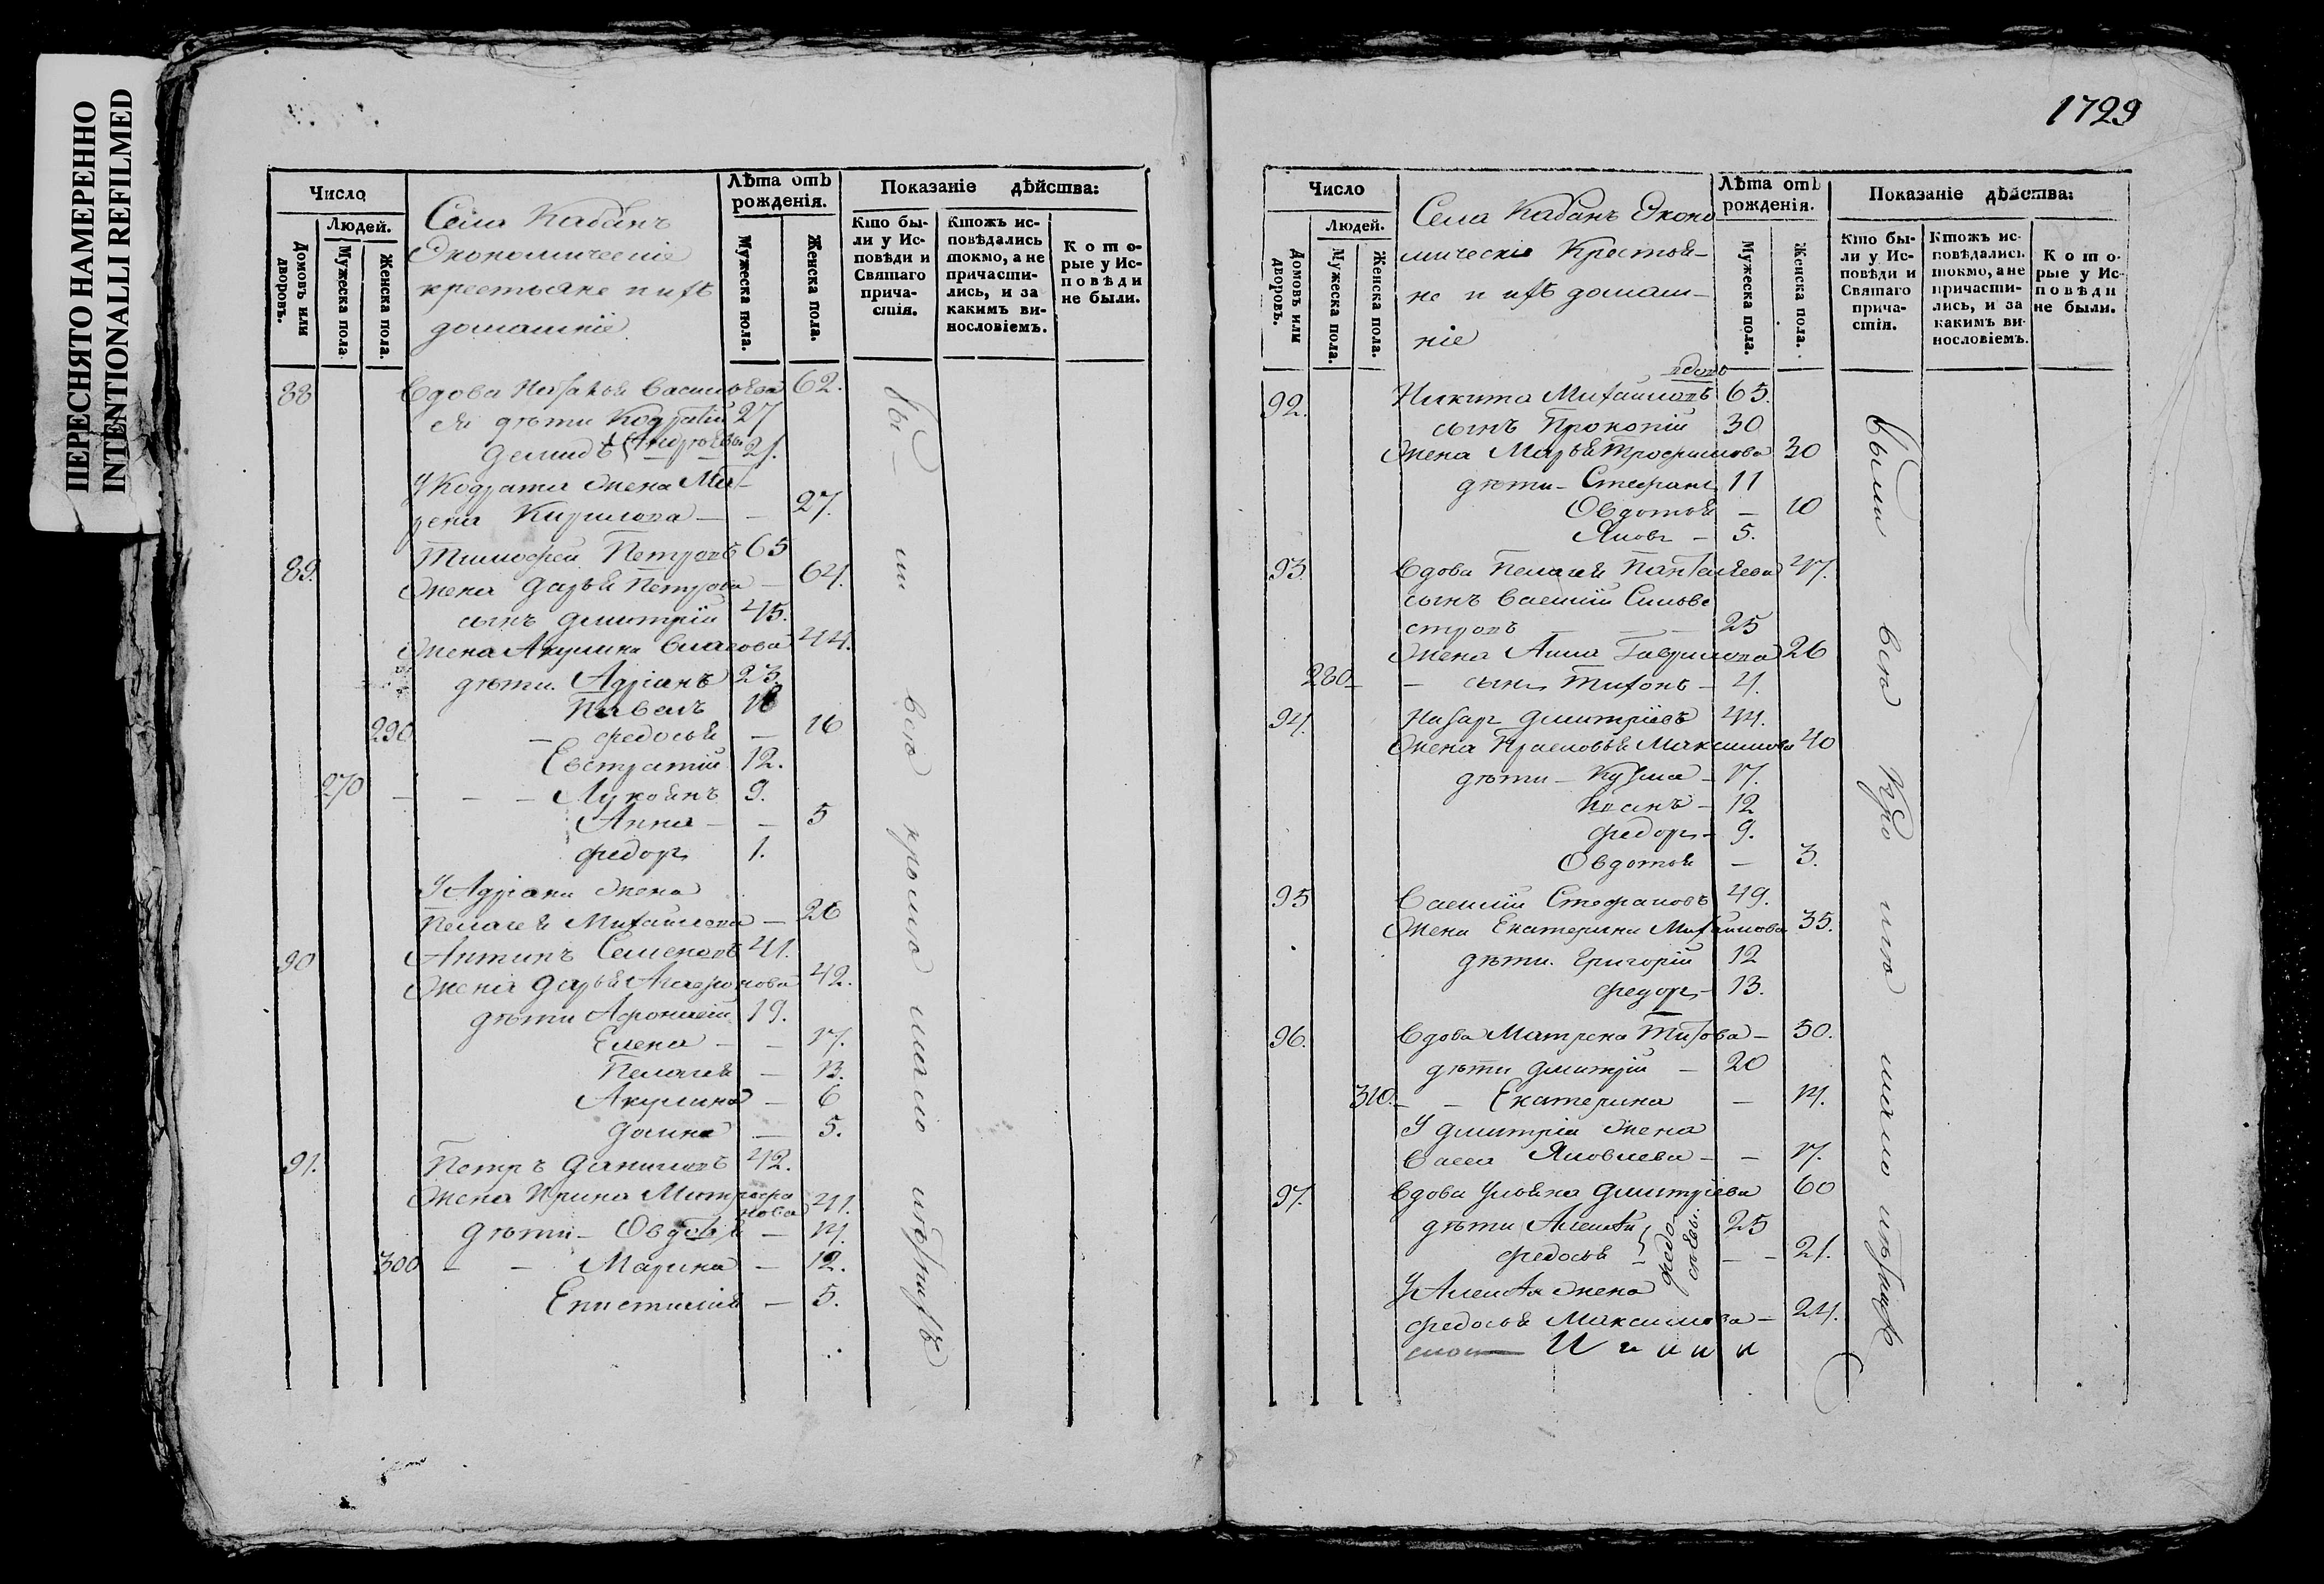 ПЕРЕСНЯТО НАМЕРЕННО
INTENTIONALLI REFILMED
Число
Людей.
Домовъ или дворовъ.
Мужеска пола
Женска пола.
Села Кабанъ
Экономическіе
крестьяне и ихъ
домашніе
Лѣта отъ рожденія.
Мужеска пола.
Женска пола.
Показаніе дѣйства:
Кто бы-
ли у Ис-
повѣди и
Святаго
прича-
стія.
Ктожъ ис-
повѣдались
токмо, а не
причасти-
лись, и за
какимъ ви-
нословіемъ.
К о т о-
рые у Ис-
п о в ѣ д и
не были.
88 Вдова Васильева 62.
Ея дѣти Кодратій 27
Демидъ Андреевы 21.
У Кодрата жена Мат-
рена Кирилова — — 27.
89. Тимофей Петровъ 65
Жена Дарья Петрова — 64.
сынъ Дмитрій 45.
Жена Акулина Власова 44.
дѣти. Адріанъ 23.
Павелъ 18
290 — Федосья — 16
Евстратій 12.
270 — — — Лукоянъ 9.
Анна — — 5
Федоръ 1.
У Адріана жена
Пелагея Михайлова — 26
90 Антипъ Семеновъ 41.
Жена Дарья 42.
дѣти Афонасій 19.
Елена — — 17.
Пелагея — 13.
Акулина — 6
Домна — 5.
91. Петръ Даниловъ 42.
Жена Ирина Митрофа
нова 41.
дѣти — Овдотья — 14.
300 — — Марина — 12.
Епистимія — 5.
бы— ли всѣ кромѣ мало лѣтнихъ
1729
Число
Людей.
Домовъ или дворовъ.
Мужеска пола.
Женска пола.
Села Кабанъ Эконо
мическіе Крестья-
не и ихъ домаш-
ніе
Лѣта отъ рожденія.
Мужеска пола.
Женска пола.
Показаніе дѣйства:
Кто бы-
ли у Ис-
повѣди и
Святаго
прича-
стія.
Ктожъ ис-
повѣдались
токмо, а не
причасти-
лись, и за
какимъ ви-
нословіемъ.
К о т о-
рые у Ис-
п о в ѣ д и
не были.
вдовъ
92. Никита Михайловъ 65.
сынъ Прокопій 30
Жена Марья Трофимова 30
дѣти — Стефанъ 11
Овдотья — 10
Яковъ — 5.
93. Вдова Пелагея 47.
сынъ Василій Силове
стровъ 25
Жена Анна Гаврилова 26
280 — — сынъ Тихонъ — 4.
94. Назаръ Дмитріевъ 44.
Жена Прасковья Максимова 40
дѣти — Кузма — 17.
Иванъ — 12
Федоръ — 9.
Овдотья — 3.
95 Василій Стефановъ 49.
Жена Екатерина Михайлова 35.
дѣти. Григорій 12
Федоръ — 13.
96. Вдова Матрена Титова — 50.
дѣти Дмитрій — 20
310. — — Екатерина — 14.
У Дмитрія жена
Васса Яковлева — — 17.
97. Вдова Ульяна Дмитріева 60
дѣти Алексѣй 25
Федосья — — 21.
Федо-
сѣевы.
У Алексѣя жена
Федосья Максимова — 24.
были всѣ кро мѣ мало лѣтнихъ